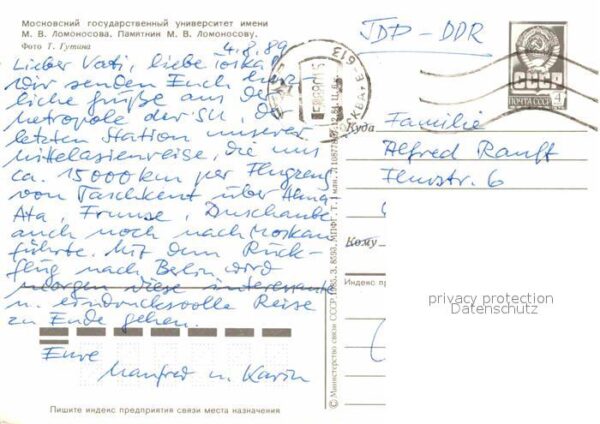 Московский государственный университет имени
М. В. Ломоносова. Памятник М. В. Ломоносову.
Фото Т. Гутина
4.8.89
Lieber Vati, liebe
Wir senden Euch herz-
liche Grüße aus der
Metropole der SU, der
letzten Station unserer
Mittelasienreise, die uns
ca. 15000 km per Flugzeug
von Taschkent über Alma
Ata, Frunse, Duschanbe
auch noch nach Moskau
führte. Mit dem Rück-
flug nach Berlin wird
morgen diese interessante
u. eindrucksvolle Reise
zu Ende gehen.
Eure
Manfred u. Karin
Пишите индекс предприятия связи места назначения
© Министерство связи СССР, 1985. З. 8593. МПФГ. Т. 1 млн.
JDD - DDR
СССР
ПОЧТА СССР 4
Куда
Familie
Alfred Ranft
6
Кому
Индекс пр
privacy protection
Datenschutz